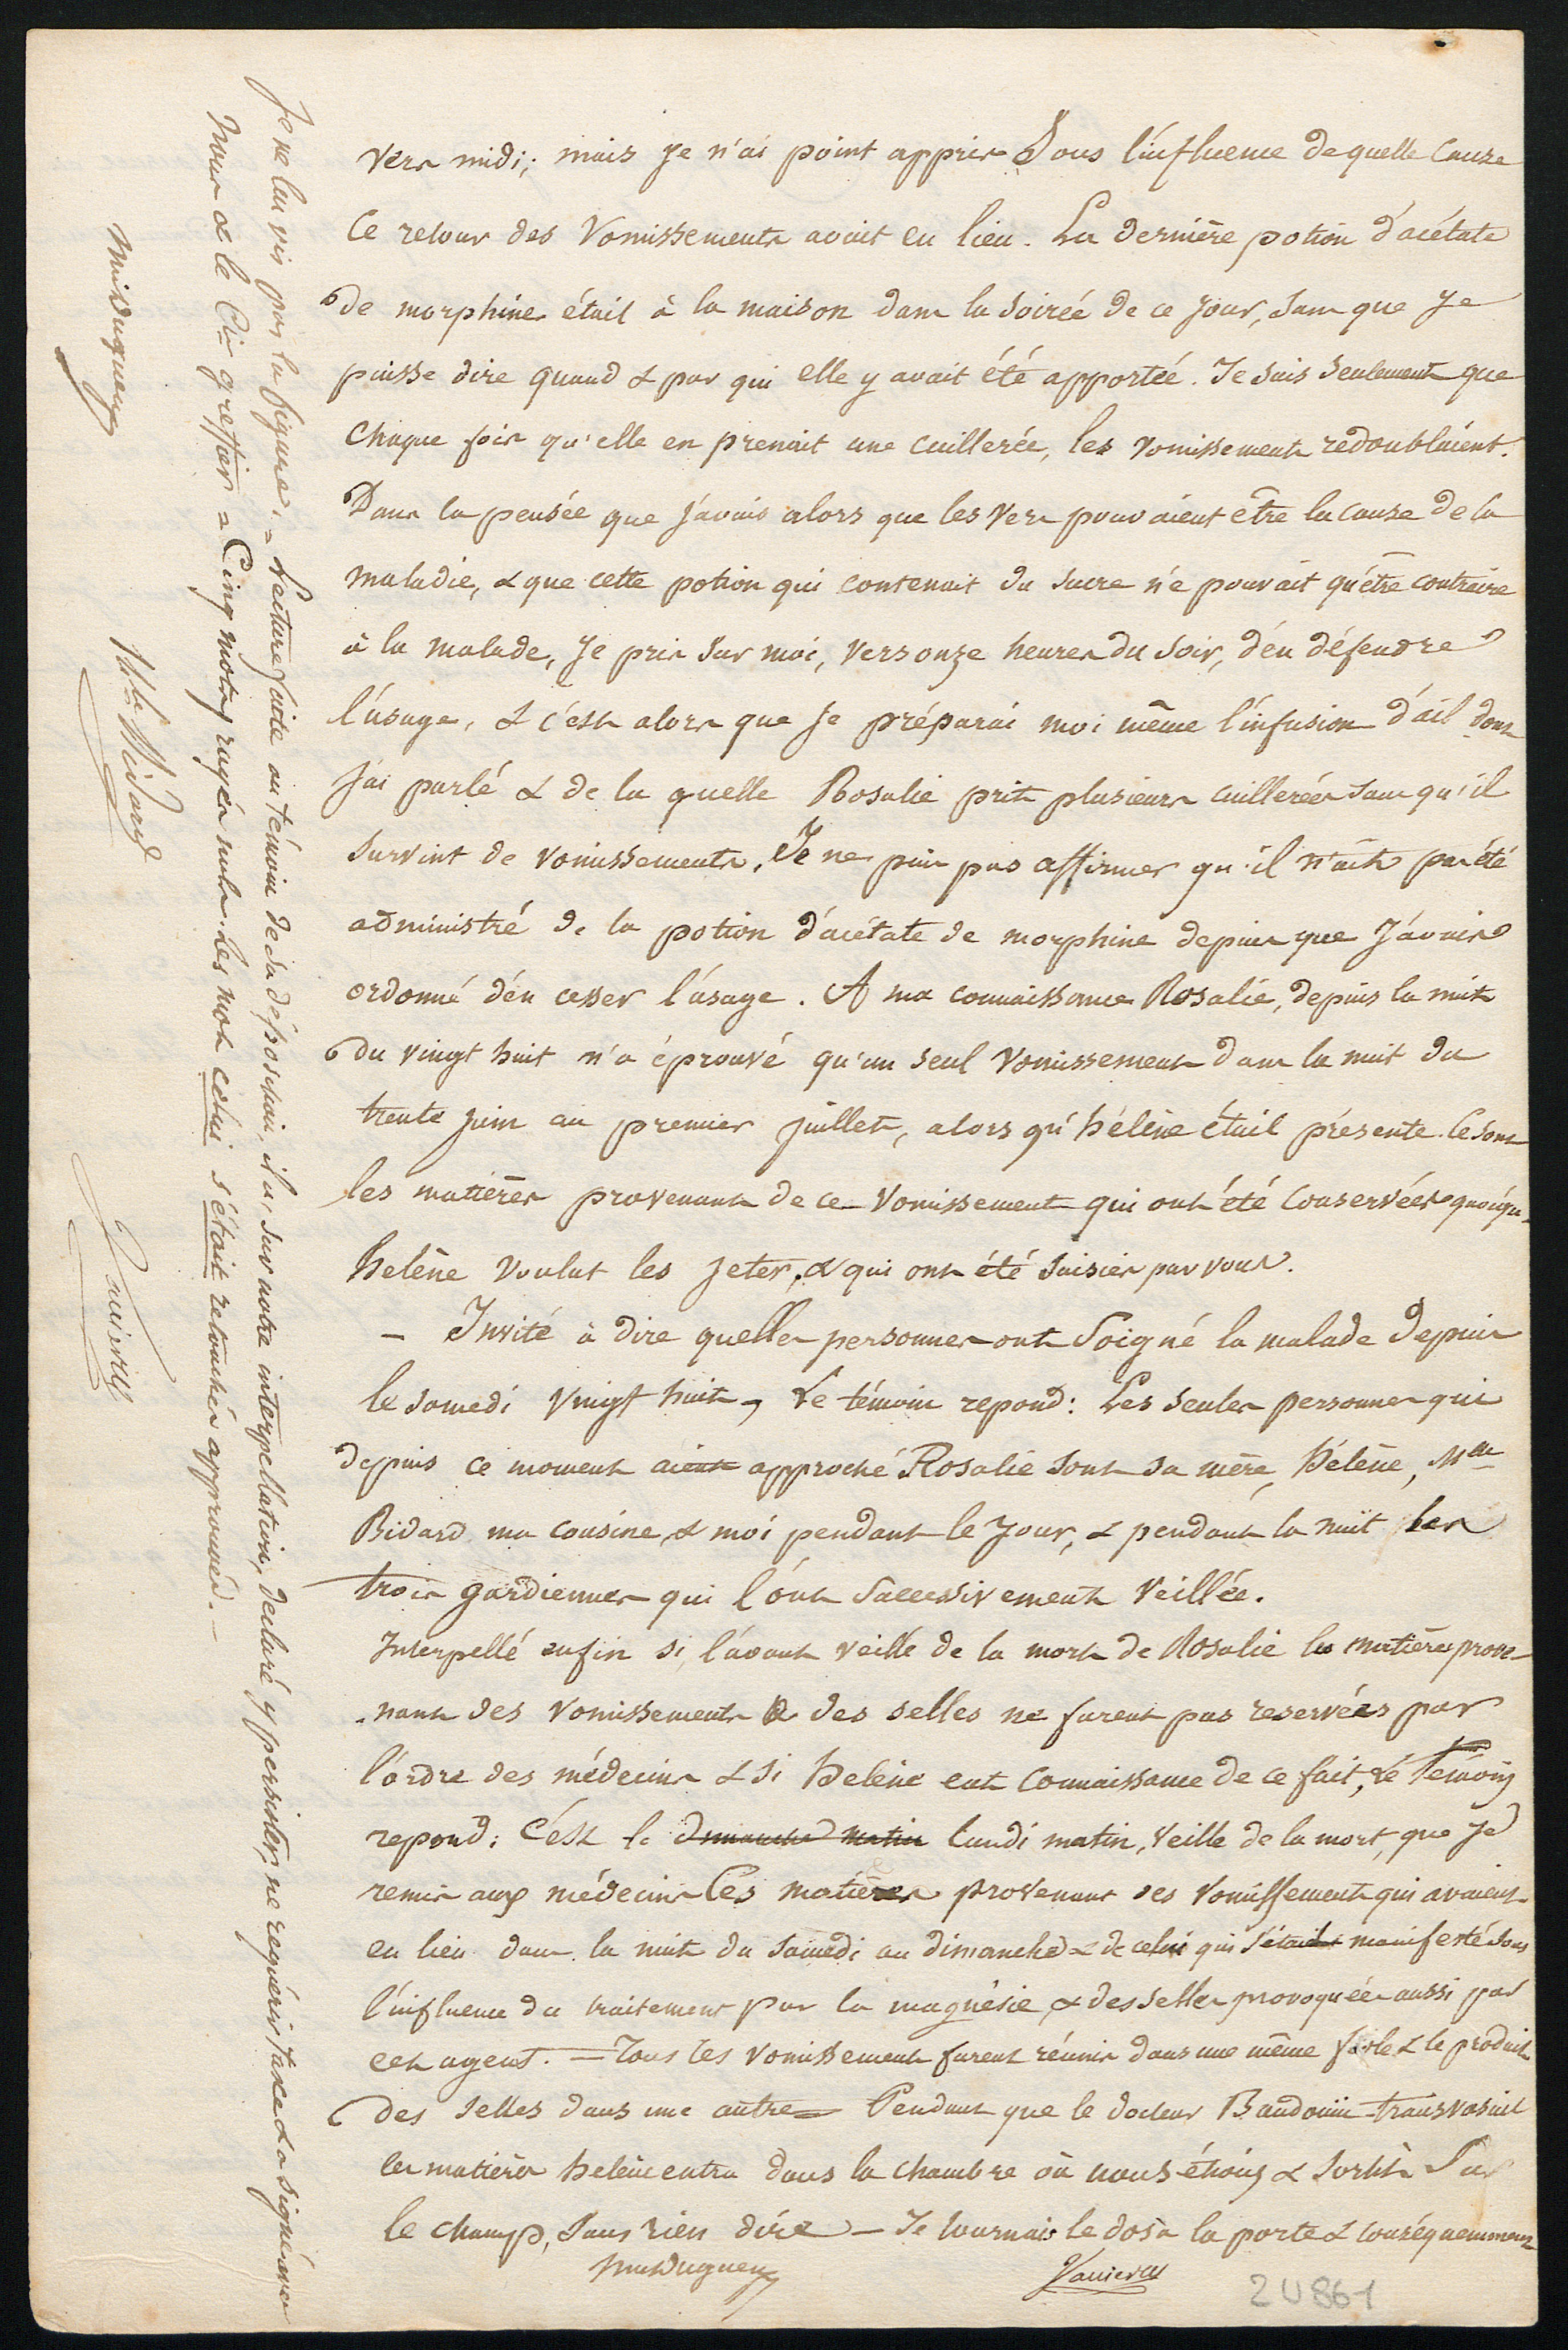 vers midi; mais je n'ai point appris sous l'influence de quelle cause
ce retour des vomissements avait eu lieu. La dernière potion d'acétate
de morphine était à la maison dans la soirée de ce jour, sans que je
puisse dire quand & par qui elle y avait été apportée. Je sais seulement que
chaque fois qu'elle en prenait une cuillerée, les vomissements redoublaient.
Dans la pensée que j'avais alors que les vers pouvaient être la cause de la
maladie, & que cette potion qui contenait du sucre ne pouvait qu'être contraire
à la malade, je pris sur moi, vers onze heures du soir, d'en défendre
l'usage, & c'est alors que je préparai moi même l'infusion d'ail dont
j'ai parlé & de la quelle Rosalie prit plusieurs cuillerées sans qu'il
survint de vomissements. Je ne puis pas affirmer qu'il n'ait pas été
administré de la potion d'acétate de morphine depuis que j'avais
ordonné d'en cesser l'usage. A ma connaissance Rosalie, depuis la nuit
du vingt huit n'a éprouvé qu'un seul vomissement dans la nuit du
trente juin au premier juillet, alors qu'hélène était présente. Ce sont
les matières provenant de ce vomissement qui ont été conservées quoiqu'
helène voulut les jeter, & qui ont été saisies par vous.
— Invité à dire quelles personnes ont soigné la malade depuis
le samedi vingt huit, Le témoin repond: Les seules personnes qui
depuis ce moment aient approché Rosalie sont sa mère, hélène, Mlle
Bidard ma cousine, & moi pendant le jour, & pendant la nuit les
trois gardiennes qui l'ont successivement veillée.
Interpellé enfin si, l'avant veille de la mort de Rosalie les matières prove-
-nant des vomissements & des selles ne furent pas reservées par
l'ordre des médecins & si helène eut connaissance de ce fait, Le Témoin
repond: C'est le dimanche matin lundi matin, veille de la mort, que je
remis aux médecins les matières provenant des vomissements qui avaient
eu lieu dans la nuit du samedi au dimanche & de celui qui s'était manifesté sous
l'influence du traitement par la magnésie & des selles provoquées aussi par
cet agent. — Tous les vomissements furent réunis dans une même fiole & le produit
des selles dans une autre = Pendant que le docteur Baudouin transvasait
les matières helène entra dans la chambre où nous étions & sortit sur
le champ, sans rien dire — Je tournais le dos à la porte & conséquemment
Je ne lui vis pas la figure. = Lecture faite au témoin de sa déposition, il a, sur notre interpellation, declaré y persister, ne requérir taxe & a signé avec
nous & le Cis greffier = Cinq mots rayés nuls. les mots celui s'était retouchés approuvés. —
Th. Bidard
2 U 861